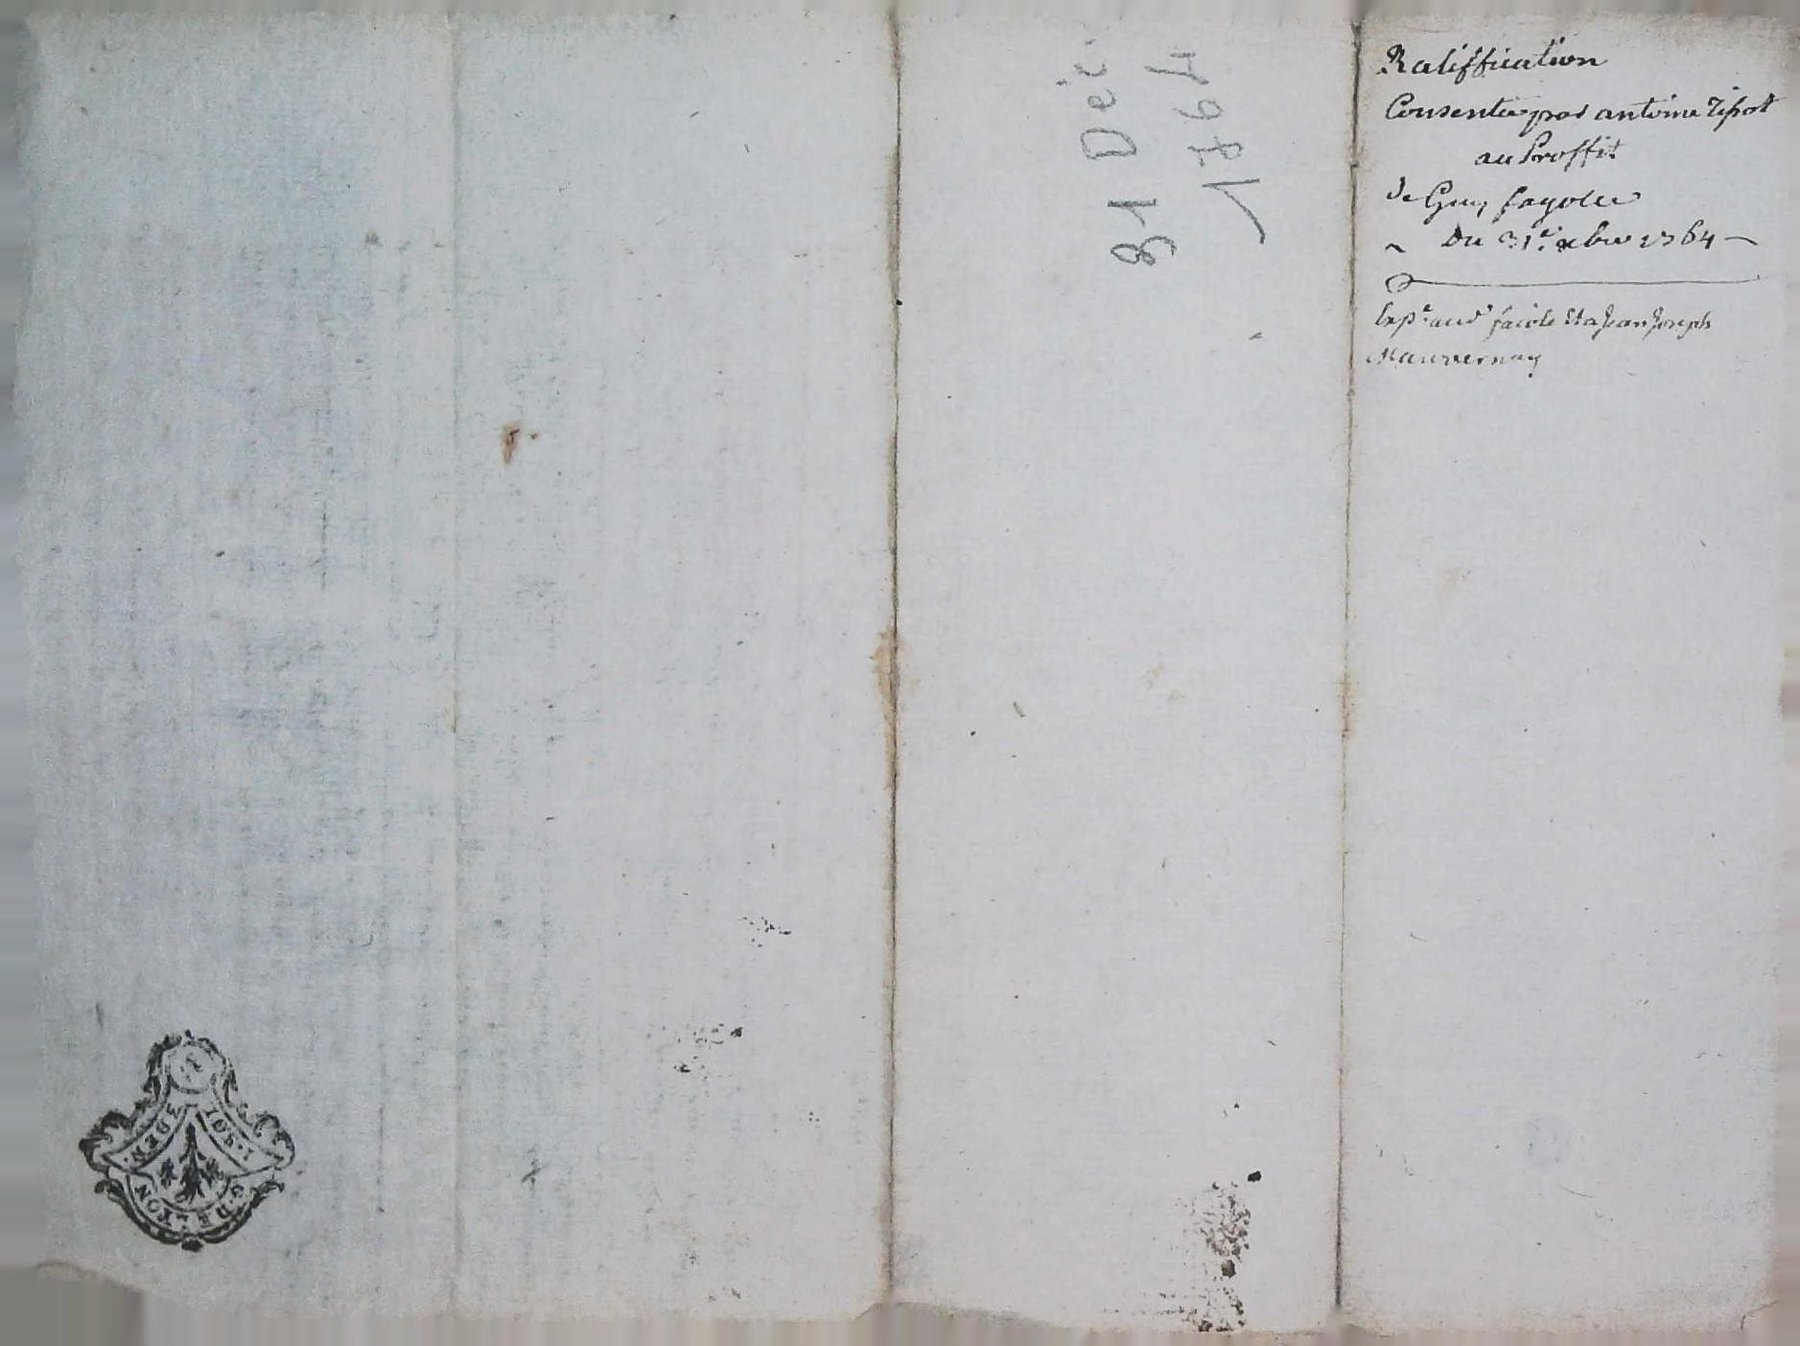 Ratiffication
Consentie par antoine Tipot
au Proffit
de Guy fayolle
Du 31.e xbre 1764
Exp.e aud. faiole Et a Jean Joseph
Mauvernay
31 Déc.
1764
1. SOL.
3 DEN.
G. DE LYON